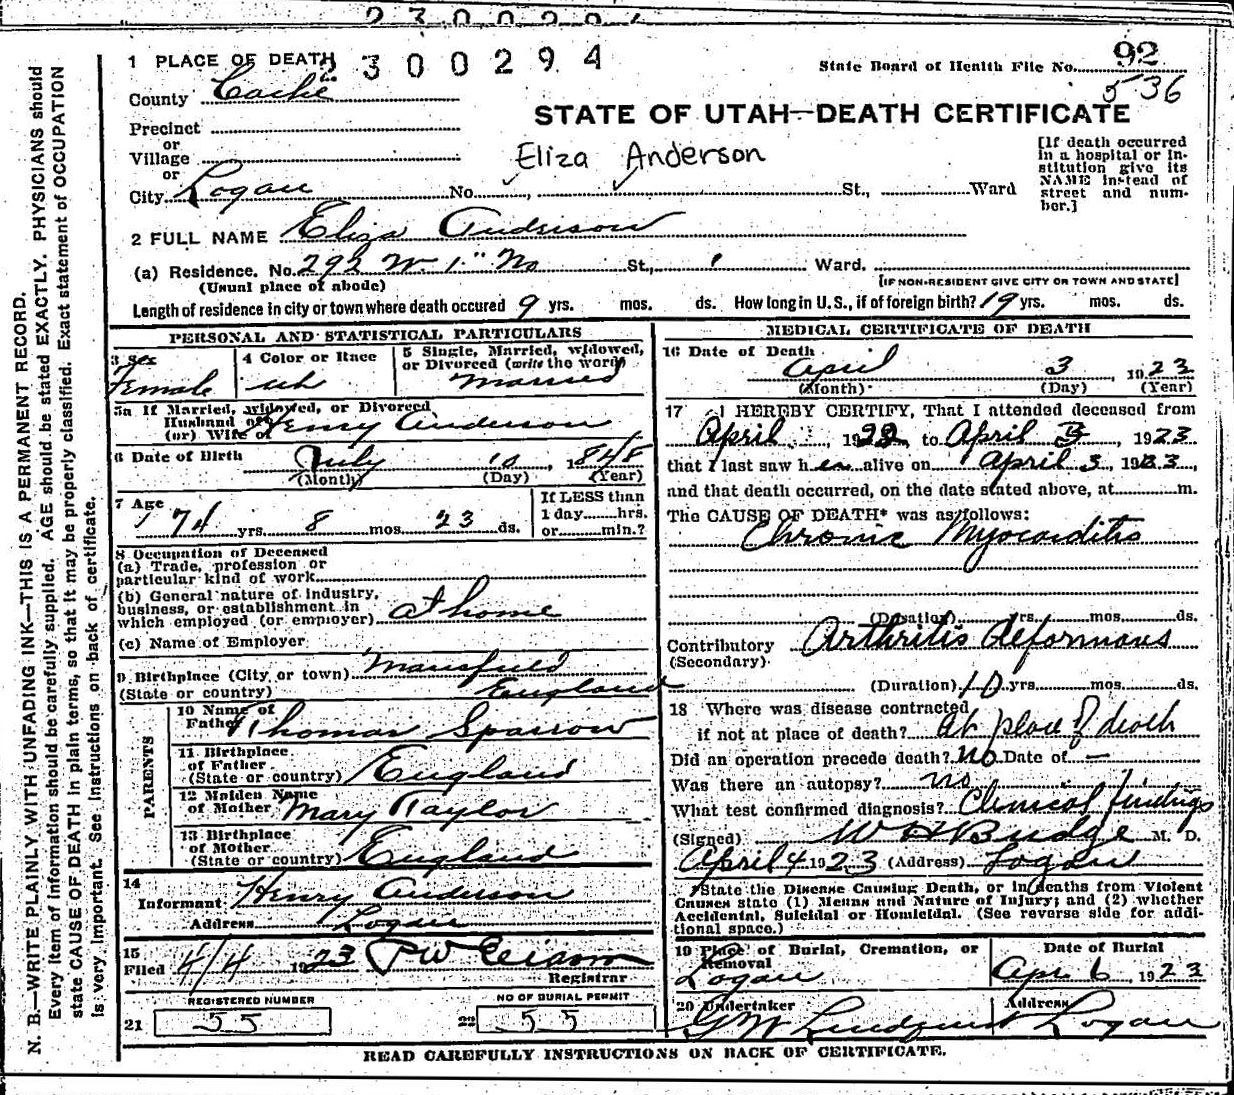 2300294
1 PLACE OF DEATH 2300294
State Board of Health File No. 92
536
County Cache
STATE OF UTAH—DEATH CERTIFICATE
Precinct
or
Village
or
Eliza Anderson
City Logan No. , St., Ward
[If death occurred in a hospital or institution give its NAME instead of street and number.]
2 FULL NAME Eliza Anderson
(a) Residence. No. 292 W. 1" No St., Ward.
(Usual place of abode)
[IF NON-RESIDENT GIVE CITY OR TOWN AND STATE]
Length of residence in city or town where death occured 9 yrs. mos. ds. How long in U. S., if of foreign birth? 19 yrs. mos. ds.
PERSONAL AND STATISTICAL PARTICULARS
3 Sex
Female
4 Color or Race
wh
5 Single, Married, widowed, or Divorced (write the word)
Married
5a If Married, widowed, or Divorced
Husband of
(or) Wife of
Henry Anderson
6 Date of Birth July 10, 1848
(Month) (Day) (Year)
7 Age
74 yrs. 8 mos. 23 ds.
If LESS than
1 day......hrs.
or......min.?
8 Occupation of Deceased
(a) Trade, profession or
particular kind of work
(b) General nature of industry,
business, or establishment in
which employed (or employer) at home
(c) Name of Employer
9 Birthplace (City or town) Mansfield
(State or country) England
PARENTS
10 Name of
Father Thomas Sparrow
11 Birthplace
of Father
(State or country) England
12 Maiden Name
of Mother Mary Taylor
13 Birthplace
of Mother
(State or country) England
14
Informant Henry Anderson
Address Logan
15
Filed 4/4 1923
Registrar
REGISTERED NUMBER
21 55
NO OF BURIAL PERMIT
22 55
MEDICAL CERTIFICATE OF DEATH
16 Date of Death
April 3, 1923
(Month) (Day) (Year)
17 I HEREBY CERTIFY, That I attended deceased from
April, 1922 to April 3, 1923
that I last saw her alive on April 3, 1923,
and that death occurred, on the date stated above, at m.
The CAUSE OF DEATH* was as follows:
Chronic Myocarditis
(Duration) yrs. mos. ds.
Contributory Arthritis deformans
(Secondary)
(Duration) 10 yrs. mos. ds.
18 Where was disease contracted
if not at place of death? at place of death
Did an operation precede death? no Date of —
Was there an autopsy? no
What test confirmed diagnosis? Clinical findings
(Signed) W H Budge M. D.
April 4 1923 (Address) Logan
*State the Disease Causing Death, or in deaths from Violent
Causes state (1) Means and Nature of Injury; and (2) whether
Accidental, Suicidal or Homicidal. (See reverse side for addi-
tional space.)
19 Place of Burial, Cremation, or
Removal
Logan
Date of Burial
Apr 6, 1923
20 Undertaker
G W Lindquist
Address
Logan
READ CAREFULLY INSTRUCTIONS ON BACK OF CERTIFICATE.
N. B.—WRITE PLAINLY WITH UNFADING INK—THIS IS A PERMANENT RECORD.
Every item of information should be carefully supplied. AGE should be stated EXACTLY. PHYSICIANS should
state CAUSE OF DEATH in plain terms, so that it may be properly classified. Exact statement of OCCUPATION
is very important. See instructions on back of certificate.